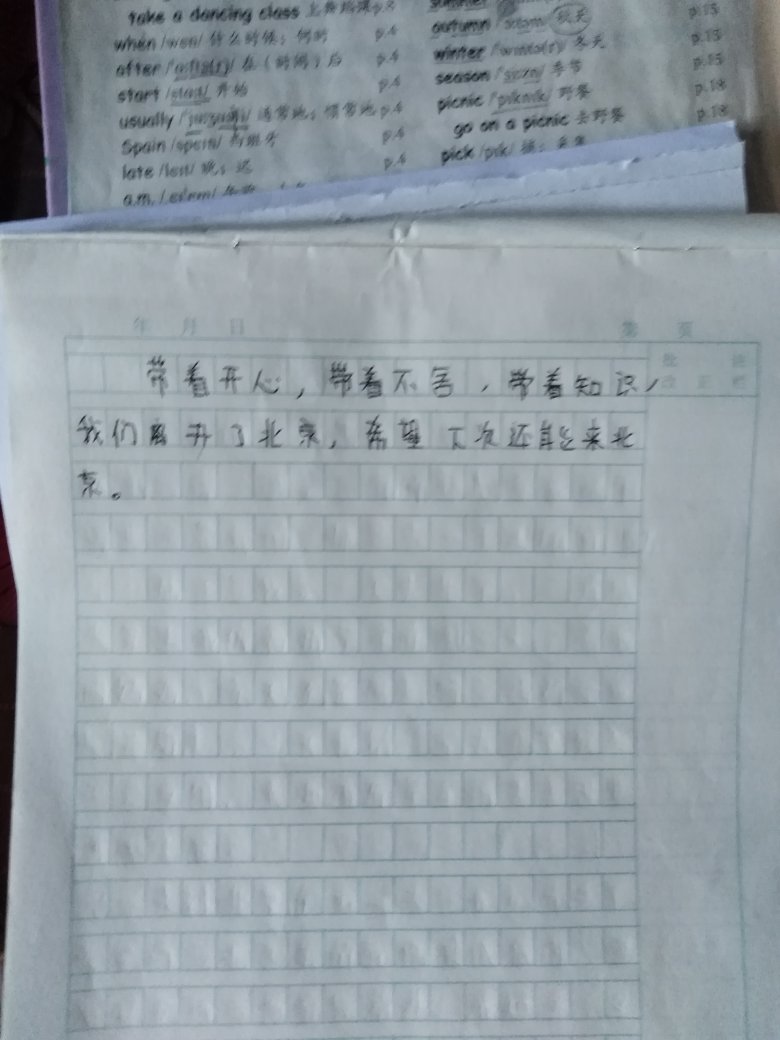 take a dancing class
when /wen/ 什么时候；何时 p.4
after 在（时间）后 p.4
start 开始 p.4
usually 通常地；惯常地 p.4
Spain 西班牙 p.4
late /leɪt/ 晚；迟 p.4
a.m.
autumn 秋天 p.15
winter 冬天 p.15
season 季节 p.15
picnic /ˈpɪknɪk/ 野餐 p.18
go on a picnic 去野餐 p.18
pick /pɪk/ 摘；采集
年 月 日 第 页
带着开心，带着不舍，带着知识，
我们离开了北京，希望下次还能来北
京。